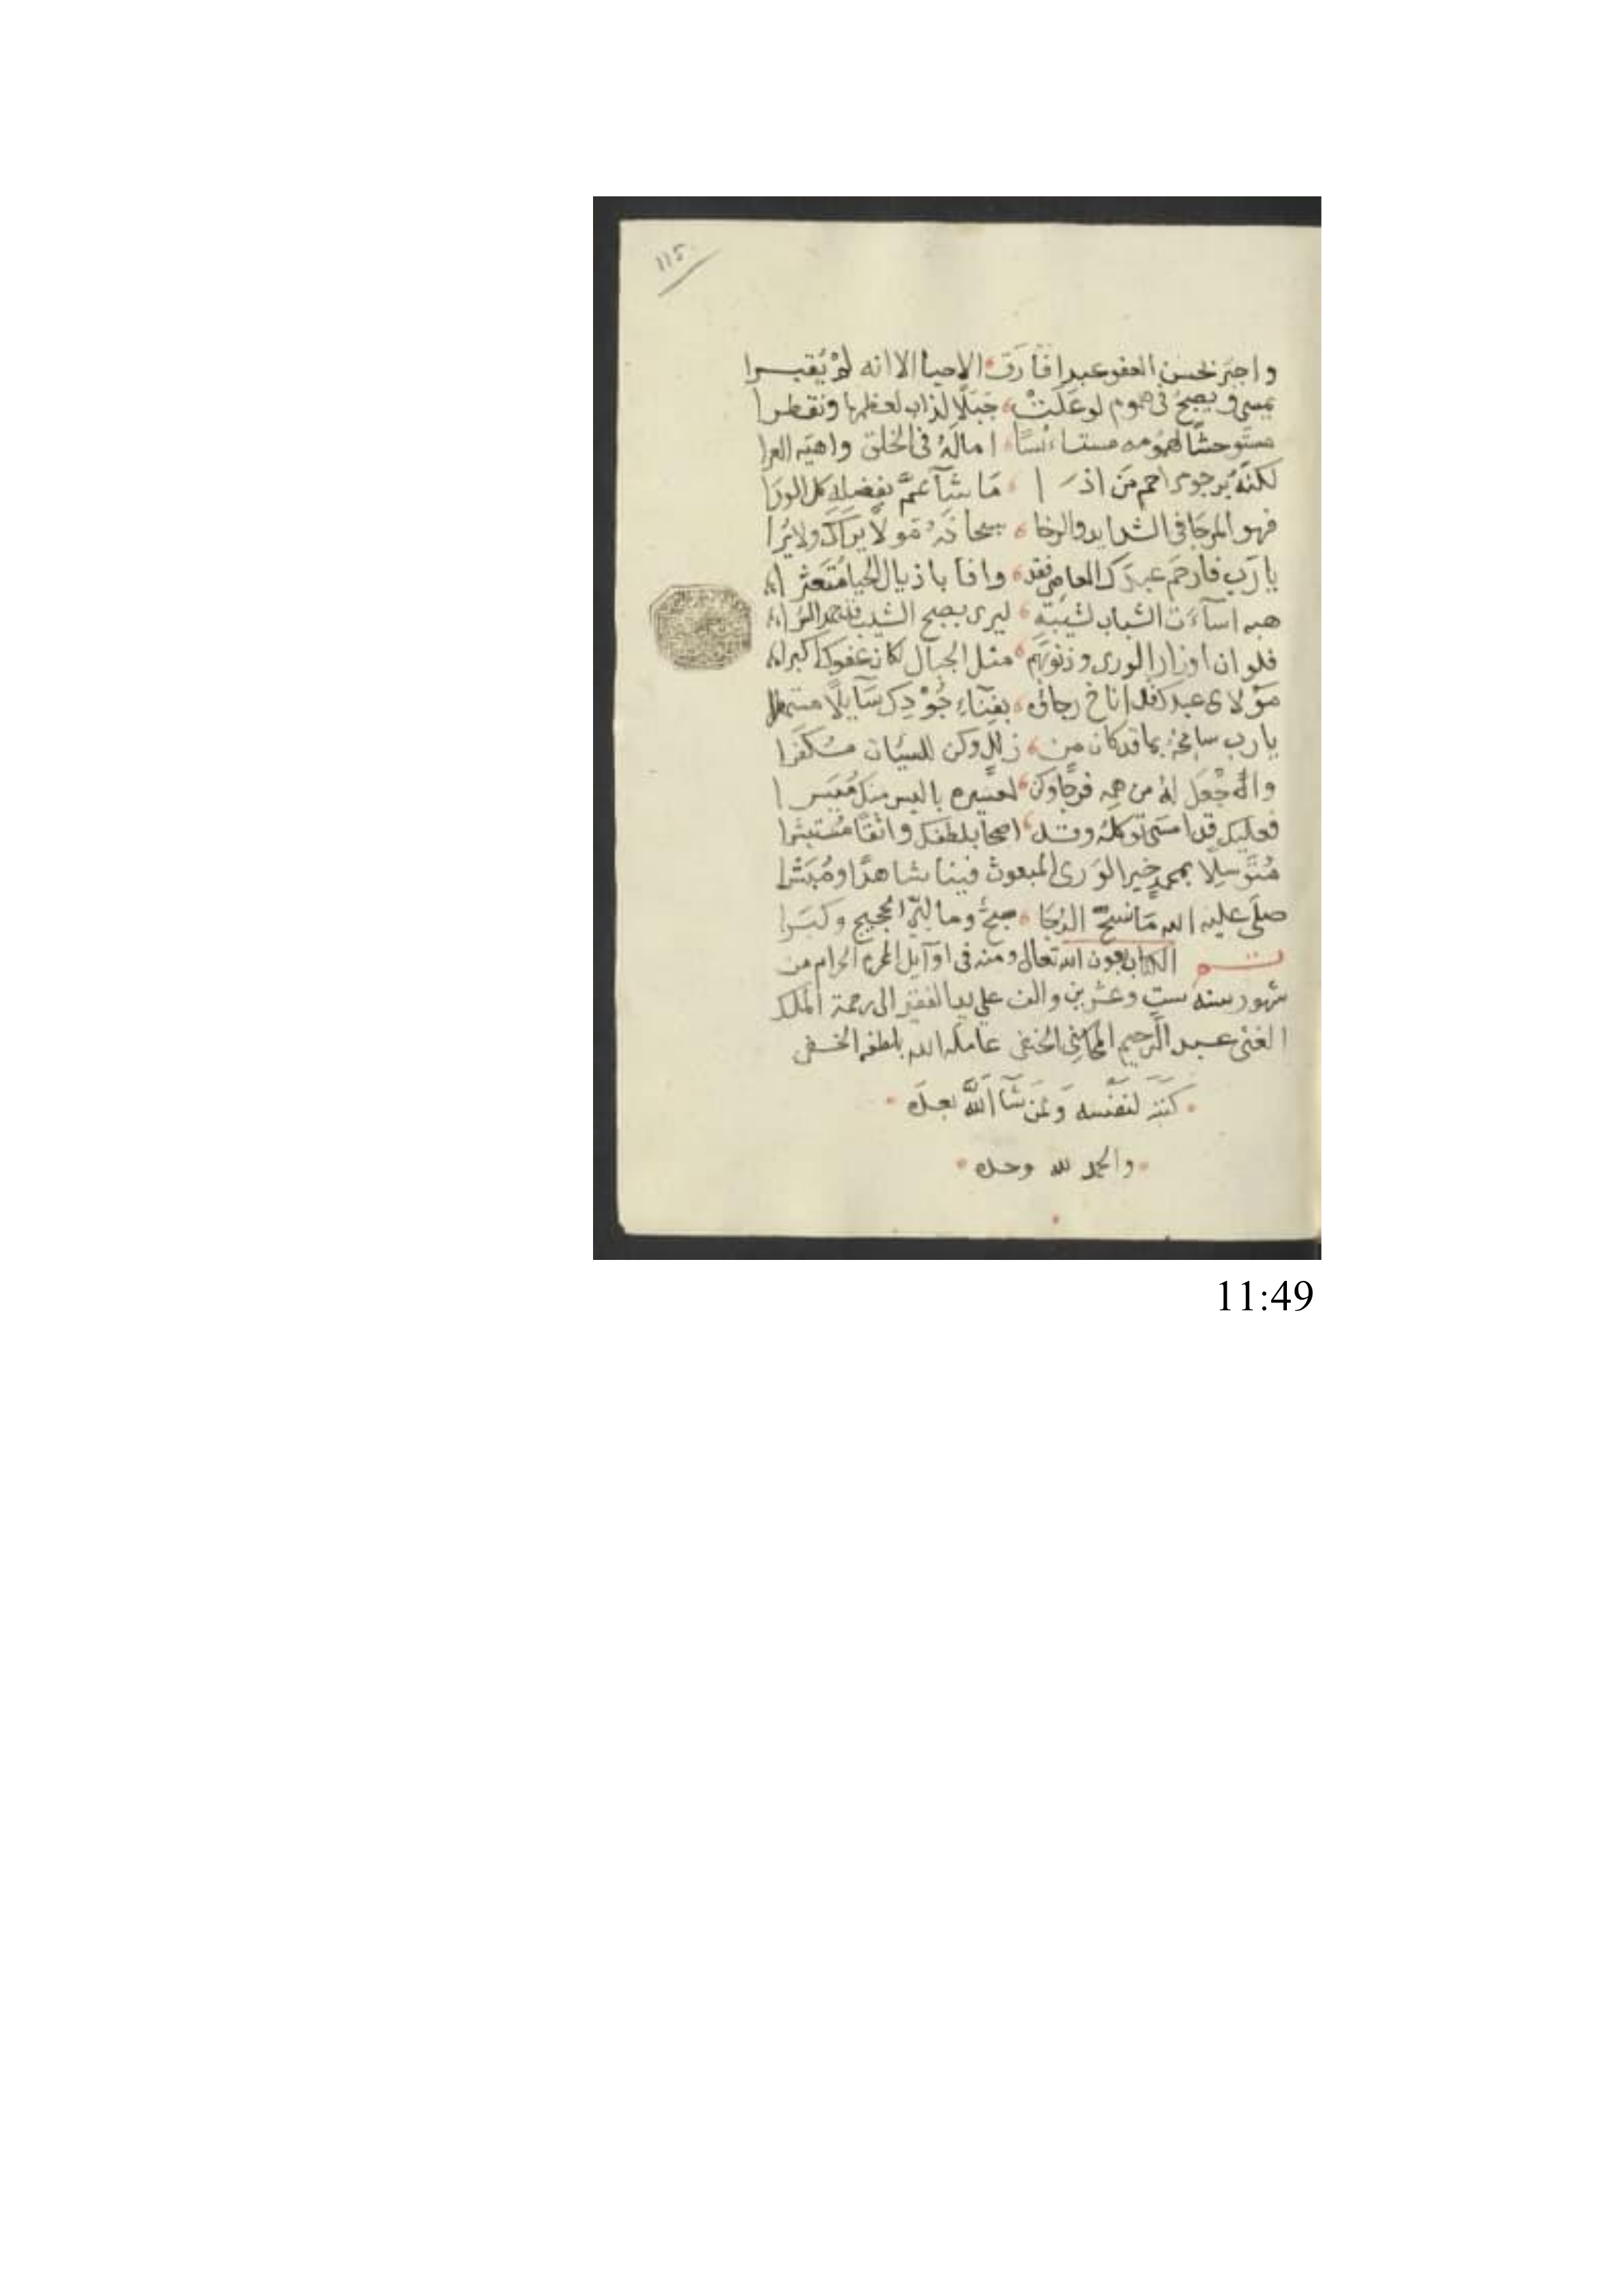 115
واجبر بحسن العفو عبدا فارق الاحيا الا انه لم يقبرا
يمسى ويصبح فى هموم لو علت جبلا لذاب لعظمها وتفطرا
مستوحشا لهمومه مستاءنسا اماله فى الخلق واهية العرا
لكنه يرجو مراحم من اذا ما شآ عم بفضله كل الورا
فهو المرجا فى الشدايد والرخا سبحانه مولا يرا ولا يرا
يا رب فارحم عبدك العاصى فقد وافا باذيال الحيا متعثرا
هبه اسآءت الشباب لشيبه ليرى بصبح الشيب
فلو ان اوزار الورى وذنوبهم مثل الجبال لكان عفوك اكبرا
مولاى عبدك قد اناخ رجائه بفنآء جودك سآيلا
يا رب سامحه بما قد كان من زلل وكن للسيئات مكفرا
واجعل له من همه فرجا وكن لعسيره باليسر منك ميسرا
فعليك قد امسى توكله وقد اضحا بلطفك واثقا مستبشرا
متوسلا بمحمد خير الورى المبعوث فينا شاهدا ومبشرا
صلى عليه الله ما نسخ الدجا صبح وما لبى الحجيج وكبرا
تم الكتاب بعون الله تعالى ومنه فى اوآيل المحرم الحرام من
شهور سنه ست وعشرين والف على يد الفقير الى رحمة الملك
الغنى عبد الرحيم الحنفى عامله الله بلطفه الخفى
كتبه لنفسه ولمن شآ الله بعده
والحمد لله وحده
11:49